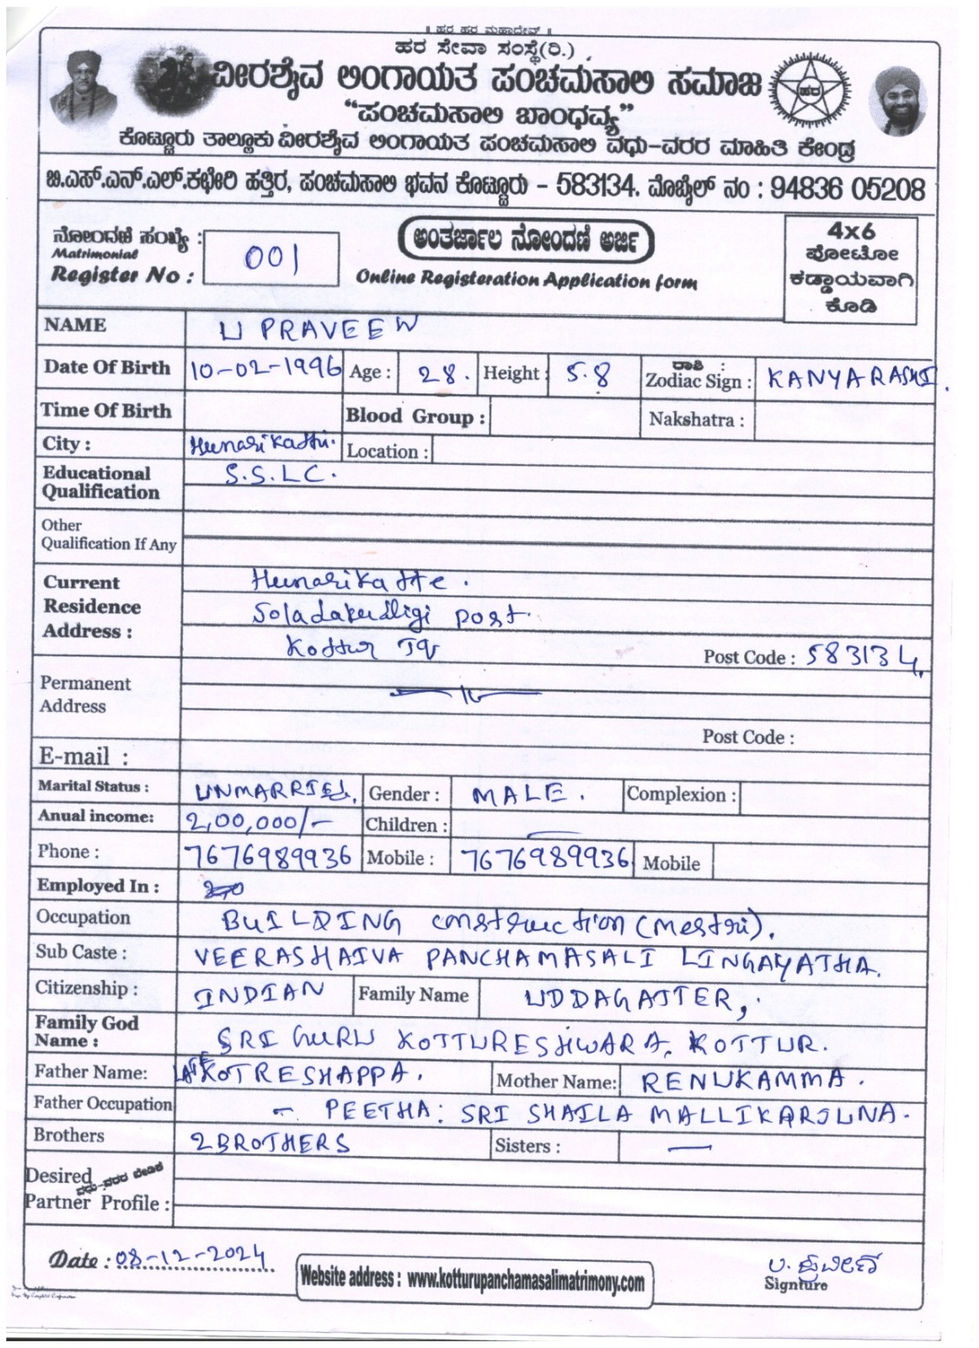 ॥ ಹರ ಹರ ಮಹಾದೇವ್ ॥
ಹರ ಸೇವಾ ಸಂಸ್ಥೆ(ರಿ.)
ವೀರಶೈವ ಲಿಂಗಾಯತ ಪಂಚಮಸಾಲಿ ಸಮಾಜ
ಹರ
"ಪಂಚಮಸಾಲಿ ಬಾಂಧವ್ಯ"
ಕೊಟ್ಟೂರು ತಾಲ್ಲೂಕು ವೀರಶೈವ ಲಿಂಗಾಯತ ಪಂಚಮಸಾಲಿ ವಧು-ವರರ ಮಾಹಿತಿ ಕೇಂದ್ರ
ಬಿ.ಎಸ್.ಎನ್.ಎಲ್.ಕಛೇರಿ ಹತ್ತಿರ, ಪಂಚಮಸಾಲಿ ಭವನ ಕೊಟ್ಟೂರು - 583134. ಮೊಬೈಲ್ ನಂ : 94836 05208
ನೋಂದಣಿ ಸಂಖ್ಯೆ :
Matrimonial
Register No : 001
ಅಂತರ್ಜಾಲ ನೋಂದಣಿ ಅರ್ಜಿ
Online Registeration Application form
4x6
ಫೋಟೋ
ಕಡ್ಡಾಯವಾಗಿ
ಕೊಡಿ
NAME U PRAVEEN
Date Of Birth 10-02-1996 Age : 28. Height : 5.8 ರಾಶಿ : Zodiac Sign : KANYARASHI.
Time Of Birth Blood Group : Nakshatra :
City : Hunasikatti. Location :
Educational Qualification S.S.LC.
Other Qualification If Any
Current Residence Address : Hunasikatte.
Soladakudligi post.
Kottur TQ Post Code : 583134.
Permanent Address —"—
Post Code :
E-mail :
Marital Status : UNMARRIED. Gender : MALE. Complexion :
Anual income: 2,00,000/- Children : —
Phone : 7676989936 Mobile : 7676989936 Mobile
Employed In :
Occupation BUILDING construction (mestri).
Sub Caste : VEERASHAIVA PANCHAMASALI LINGAYATHA.
Citizenship : INDIAN Family Name UDDAGATTER,.
Family God Name : SRI GURU KOTTURESHWARA. KOTTUR.
Father Name: LATE KOTRESHAPPA. Mother Name: RENUKAMMA.
Father Occupation - PEETHA: SRI SHAILA MALLIKARJUNA.
Brothers 2 BROTHERS Sisters : —
Desired Partner Profile :
ವಧು-ವರರ ಬೇಡಿಕೆ
Date : 08-12-2024
Website address : www.kotturupanchamasalimatrimony.com
ಉ. ಪ್ರವೀಣ್
Signture